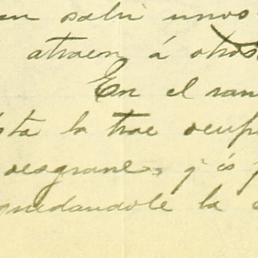 sabi unos
atraen á otros
En el ran
sta la trae ocup
desgrane, y és
quedandole la